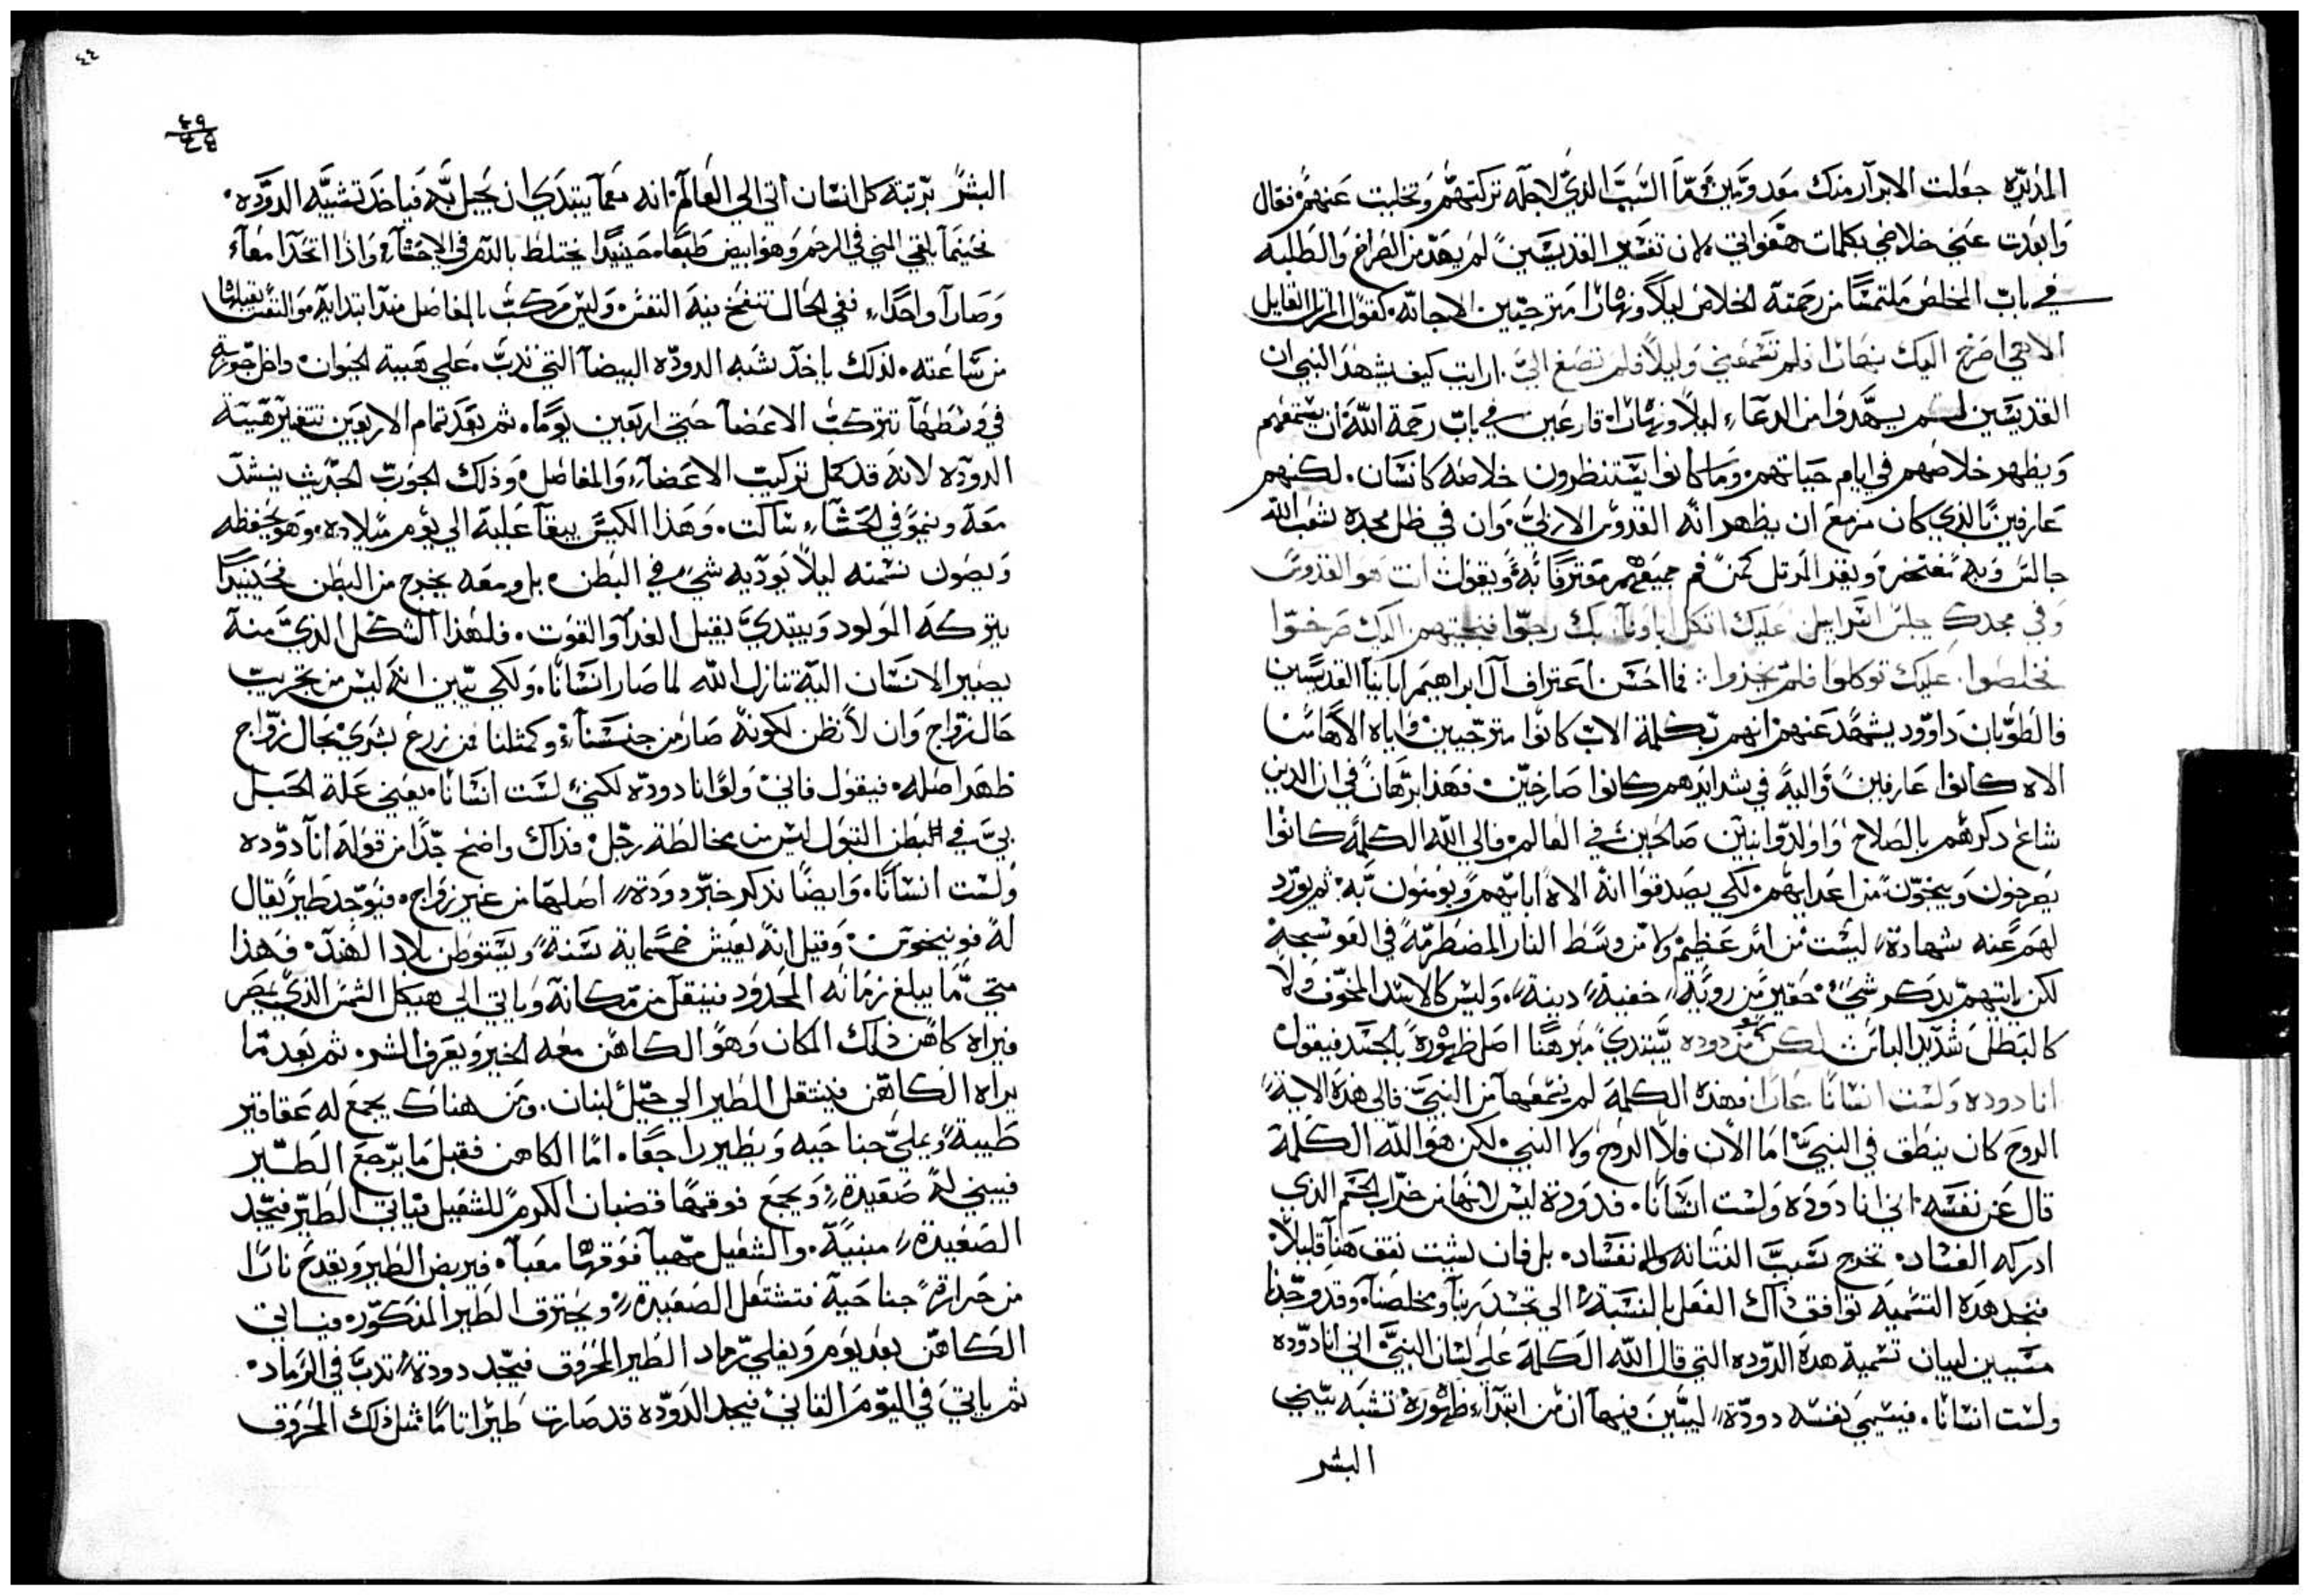 المذبره جعلت الابرار منك معدومين فما السبب الذي لاجله تركتهم وتخليت عنهم فقال
وابعدت عني خلاصي بكلمات هفواتي لان تفسير القديسين لم يهد من الصراخ والطلبه
في باب المخلص ملتمسا من رحمته الخلاص ليلا ونهارا مترجيين الاجابه كقول المزمار القايل
الاهي اصرخ اليك نهارا فلم تسمعني وليلا فلم تصغ الي ارايت كيف يشهد النبي ان
القديسين لم يهدوا من الدعاء ليلا ونهارا قارعين في باب رحمة الله ان يسمعهم
ويظهر خلاصهم في ايام حياتهم وما كانوا يستنظرون خلاصه كانسان لكنهم
عارفين بالذي كان مزمع ان يظهر انه القدوس الازلي وان في ظل مجده شعب الله
جالس وبه مفتخر ويقر المرتل كمن فم جميعهم معترفا به ويقول انت هو القدوس
وفي مجدك جلس اسراييل عليك اتكل اباونا بك رجوا فنجيتهم اليك صرخوا
فخلصوا عليك توكلوا فلم يخزوا فما احسن اعتراف آل ابراهيم ابانيا القديسين
فالطوبان داوود يشهد عنهم انهم بكلمة الاب كانوا مترجيين واياه الاها
الاه كانوا عارفين واليه في شدايدهم كانوا صارخين فهذا برهان في ان الذين
شاع ذكرهم بالصلاح واولدوا بنين صالحين في العالم فالي الله الكلمه كانوا
يصرخون وينجون من اعدايهم لكي يصدقوا انه الاه ابايهم ويومنون به ثم يورد
لهم عنه شهادة ليست من امر عظيم ولا من وسط النار المضطرمه في العوسجه
لكن ياتيهم بذكر شي حقير من روية خفية دينة وليس كالاسد المخوف ولا
كالبطل شديد الباس لكن كمن دوده يبتدي مبرهنا اصل ظهوره بالجسد فيقول
انا دوده ولست انسانا عارا فهذه الكلمة لم نسمعها من النبي فالي هذه الاية
الروح كان ينطق في النبي اما الان فلا الروح ولا النبي لكن هو الله الكلمة
قال عن نفسه اني انا دوده ولست انسانا فدودة ليس لانها من خراب الجسم الذي
ادركه الفساد تخرج بسبب النتانه والـ نفساد بل فان لشيت نقف هنا قليلا
فنجد هذه التسميه توافق ذاك الفعل بالنسبة الي تجسد ربنا ومخلصنا وقد وجدنا
مسببين لبيان تسمية هذه الدوده التي قال الله الكلمة علي لسان النبي اني انا دوده
ولست انسانا فيسمي نفسه دودة ليبين فيها ان من ابتداء ظهوره تشبه ببني
البشر
٤٤
٤٩
٤٤
البشر برتبة كل انسان اتي الي العالم انه معما يبتدي ان يحبل به فياخذ تشبيه الدوده
فحينما يلقي المني في الرحم وهو ابيض طبعا حينيذا يختلط بالدم في الاحشاء واذا اتحدا معا
وصارا واحدا ففي الحال تنفخ فيه النفس وليس مركب بالمفاصل منذ ابتدايه والنفس يقبلها
من ساعته لذلك ياخذ شبه الدوده البيضا التي تدب علي هيية الحيوان داخل جورب
في وسطها تتركب الاعضا حتي اربعين يوما ثم بعد تمام الاربعين تتغير هيية
الدوده لانه قد كمل تركيب الاعضاء والمفاصل وذلك الجورب الحبريث ينشد
معه وينمو في الحشاء ساكت وهذا الكيس يبقا عليه الي يوم ميلاده وهو يحفظه
ويصون نسمته ليلا يوذيه شي في البطن بل ومعه يخرج من البطن فحينيذا
يتركه المولود ويبتدي يقبل الغدا والقوت فلهذا الشكل الذي منه
يصير الانسان اليه تنازل الله لما صار انسانا ولكي يبين انه ليس من تجريب
حال زواج وان لا نظن لكونه صار من جنسنا وكمثلنا من زرع بشري بحال زواج
ظهر اصله فيقول فاني ولو انا دوده لكني لست انسانا يعني علة الحبل
بي في البطن البتول ليس من مخالطة رجل فذاك واضح جدا من قوله انا دوده
ولست انسانا وايضا نذكر خبر دودة اصلها من غير زواج فيوجد طير يقال
له فونيخوس وقيل انه يعيش خمسماية سنة ويستوطن بلاد الهند فهذا
متي ما يبلغ زمانه المحدود فينتقل من مكانه وياتي الي هيكل الشمس الذي بمصر
فيراه كاهن ذلك المكان وهو الكاهن معه الخير ويعرف الشر ثم بعد ما
يراه الكاهن فينتقل الطير الي جبل لبنان ومن هناك يجمع له عقاقير
طيبة ويملي جناحيه ويطير راجعا اما الكاهن فقبل ما يرجع الطير
فيبني له صغيدة ويجمع فوقها قضبان الكرم للشغيل فياتي الطير فيجد
الصغيدة مبنية والشغيل مهيا فوقها معبا فيربض الطير ويقدح نارا
من حرارة جناحيه فتشتعل الصغيدة ويحترق الطير المذكور فياتي
الكاهن بعد يوم ويفلي رماد الطير المحروق فيجد دودة تدب في الرماد
ثم ياتي في اليوم الثاني فيجد الدوده قد صارت طيرا تاما مثل ذلك المحروق